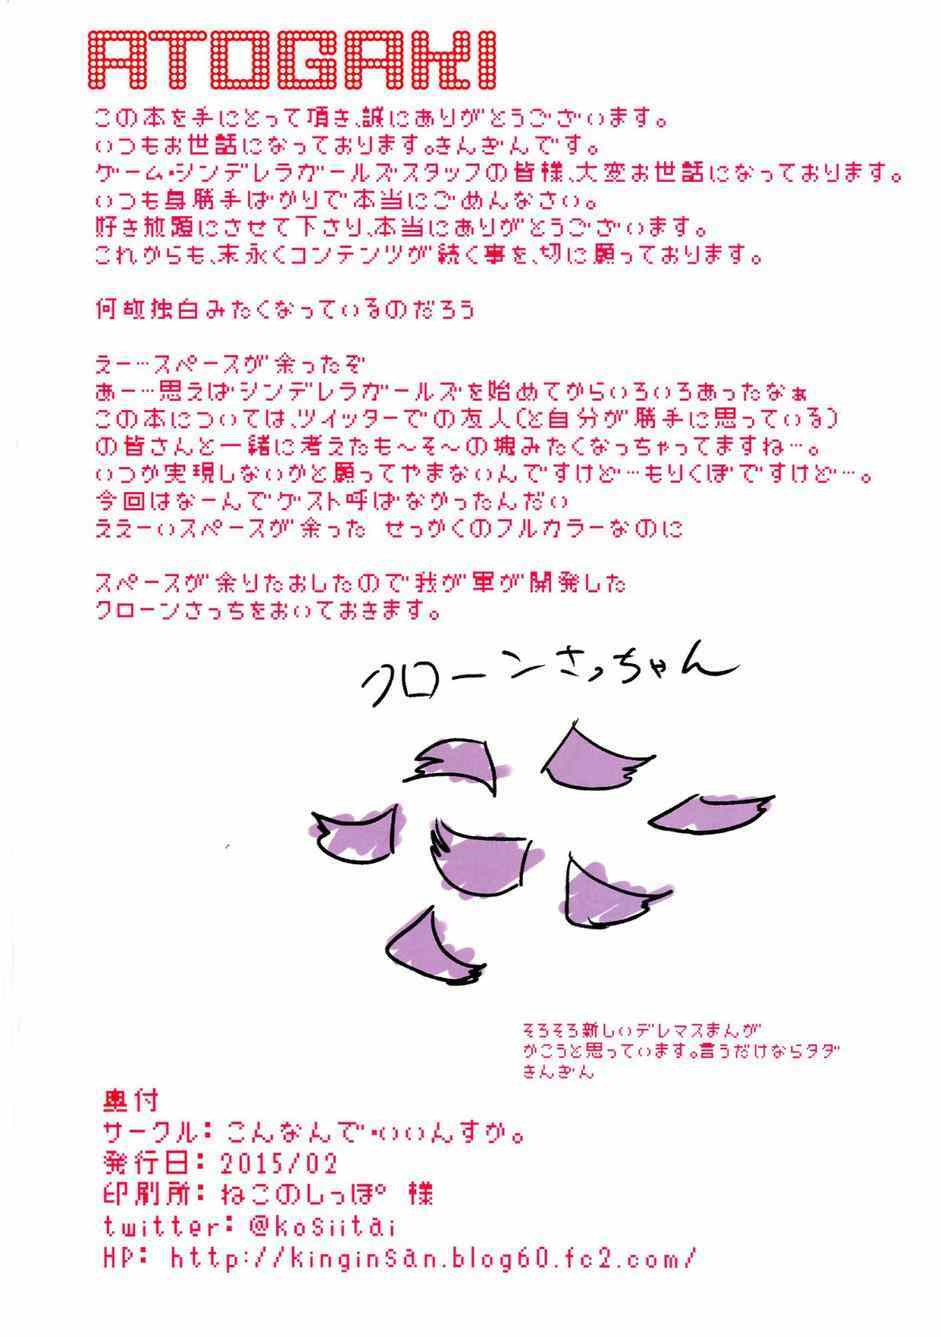 ATOGAKI
この本を手にとって頂き、誠にありがとうございます。
いつもお世話になっております。きんぎんです。
ゲーム・シンデレラガールズスタッフの皆様、大変お世話になっております。
いつも身勝手ばかりで本当にごめんなさい。
好き放題にさせて下さり、本当にありがとうございます。
これからも、末永くコンテンツが続く事を、切に願っております。
何故独白みたくなっているのだろう
えー…スペースが余ったぞ
あー…思えばシンデレラガールズを始めてからいろいろあったなぁ
この本については、ツイッターでの友人(と自分が勝手に思っている)
の皆さんと一緒に考えたも～そ～の塊みたくなっちゃってますね…。
いつか実現しないかと願ってやまないんですけど…もりくぼですけど…。
今回はなーんでゲスト呼ばなかったんだい
ええーいスペースが余った せっかくのフルカラーなのに
スペースが余りたおしたので我が軍が開発した
クローンさっちをおいておきます。
クローンさっちゃん
そろそろ新しいデレマスまんが
かこうと思っています。言うだけならタダ
きんぎん
奥付
サークル: こんなんで・いいんすか。
発行日: 2015/02
印刷所: ねこのしっぽ 様
twitter: @kosiitai
HP: http://kinginsan.blog60.fc2.com/